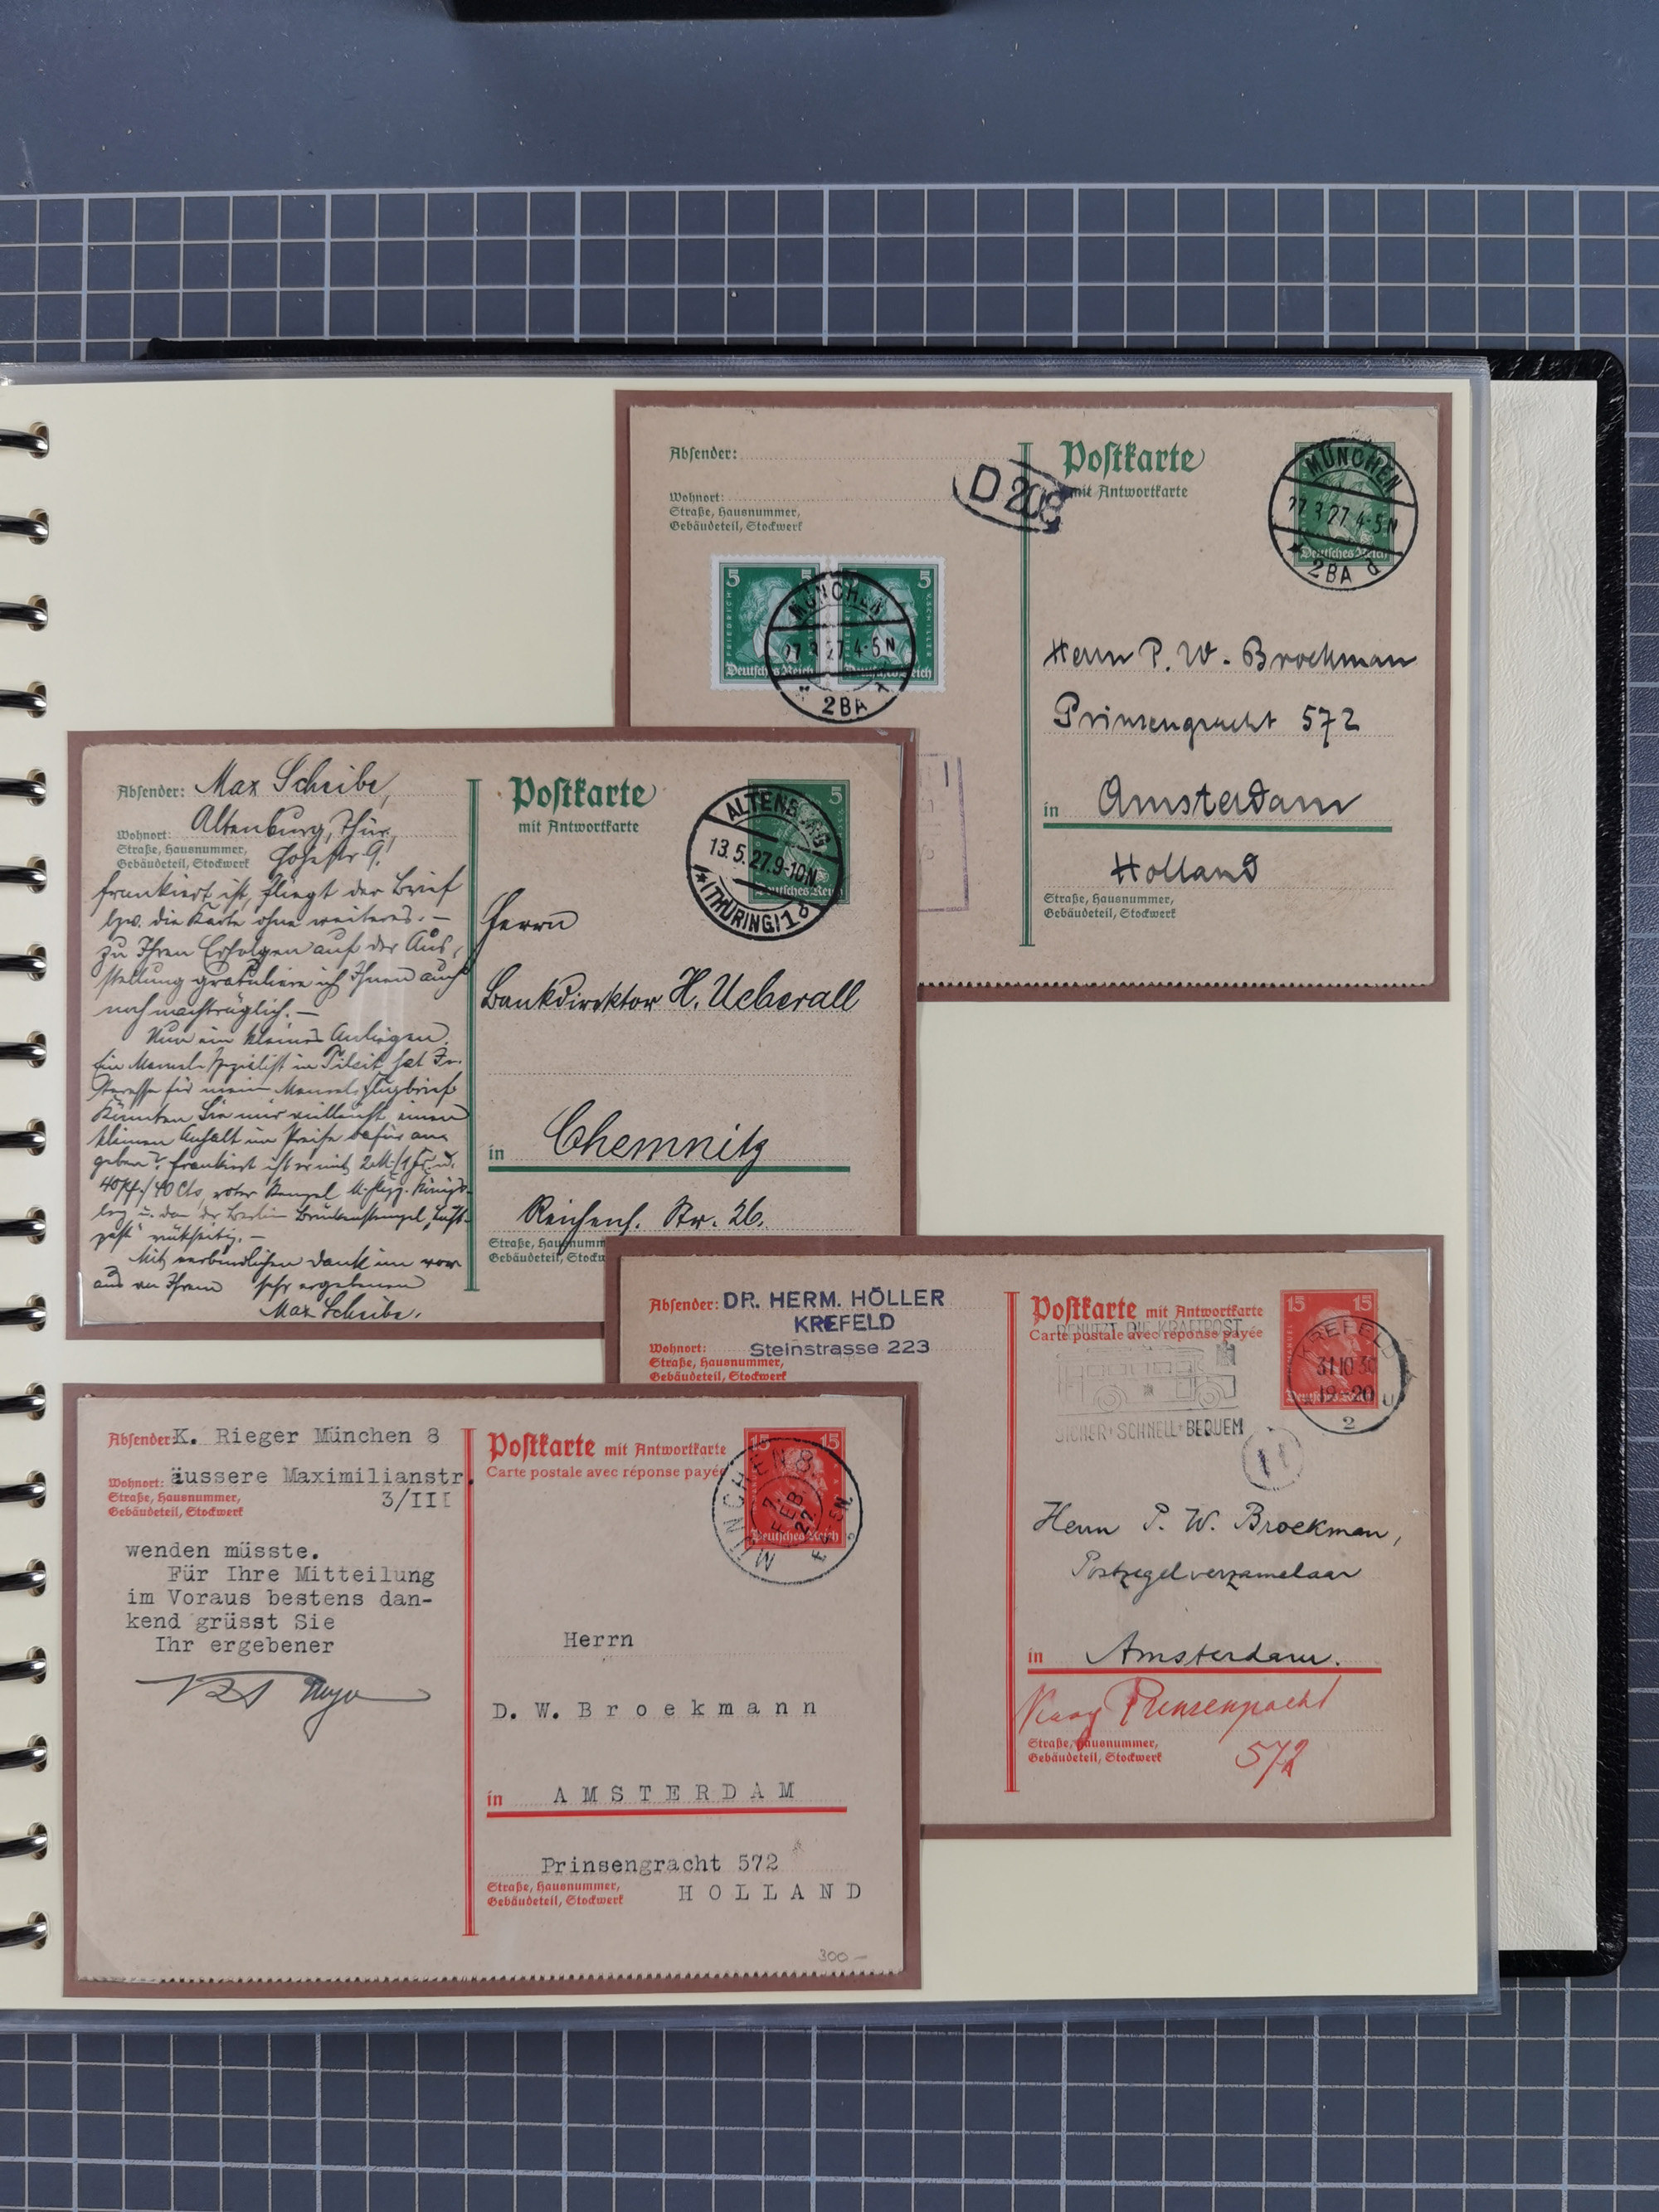 Absender:
Wohnort:
Straße, Hausnummer,
Gebäudeteil, Stockwerk
D 208
Postkarte
mit Antwortkarte
MÜNCHEN
27 3 27 4-5 N
2BA d
Deutsches Reich
5 5 5
FRIEDRICH
Deutsches Reich
F.v.SCHILLER
Deutsches Reich
MÜNCHEN
27 3 27 4-5 N
2BA
Herrn P. W. Broekman
Prinsengracht 572
in Amsterdam
Holland
Straße, Hausnummer,
Gebäudeteil, Stockwerk
Absender: Max Scheibe,
Wohnort: Altenburg, Thür.,
Straße, Hausnummer,
Gebäudeteil, Stockwerk
frankiert ist, fliegt der Brief
bzw. die Karte ohne weiteres. —
Zu Ihren Erfolgen auf der Aus-
stellung gratuliere ich Ihnen auch
noch nachträglich. —
Nun ein kleines Anliegen.
Ein Memel-Spezialist in Tilsit hat In-
teresse für meinen Memel-Flugbrief.
Könnten Sie mir vielleicht einen
kleinen Anhalt im Preise dafür an-
geben? Frankiert ist er mit
Mit verbindlichem Dank im vor-
aus von Ihrem sehr ergebenen
Max Scheibe.
Postkarte
mit Antwortkarte
5
Deutsches Reich
ALTENBURG
13.5.27.9-10N
(THÜRING) 1 b
Herrn
Bankdirektor H. Ueberall
in Chemnitz
Reichenh. Str. 26.
Straße, Hausnumm
Gebäudeteil, Stockw
Absender: DR. HERM. HÖLLER
KREFELD
Wohnort: Steinstrasse 223
Straße, Hausnummer,
Gebäudeteil, Stockwerk
Postkarte mit Antwortkarte
Carte postale avec réponse payée
BENUTZT DIE KRAFTPOST
SICHER+SCHNELL+BEQUEM
15 15
Deutsches Reich
KREFELD
31 10 30
12-20 U
2
11
Herrn P. W. Broekman,
Postzegelverzamelaar
in Amsterdam.
Prinsengracht
572
Straße, Hausnummer,
Gebäudeteil, Stockwerk
Absender: K. Rieger München 8
Wohnort: äussere Maximilianstr.
3/III
Straße, Hausnummer,
Gebäudeteil, Stockwerk
wenden müsste.
Für Ihre Mitteilung
im Voraus bestens dan-
kend grüsst Sie
Ihr ergebener
Postkarte mit Antwortkarte
Carte postale avec réponse payée
15 15
Deutsches Reich
MÜNCHEN 8.
7.
FEB.
27.
Herrn
D. W. Broekmann
in AMSTERDAM
Prinsengracht 572
HOLLAND
Straße, Hausnummer,
Gebäudeteil, Stockwerk
300 —